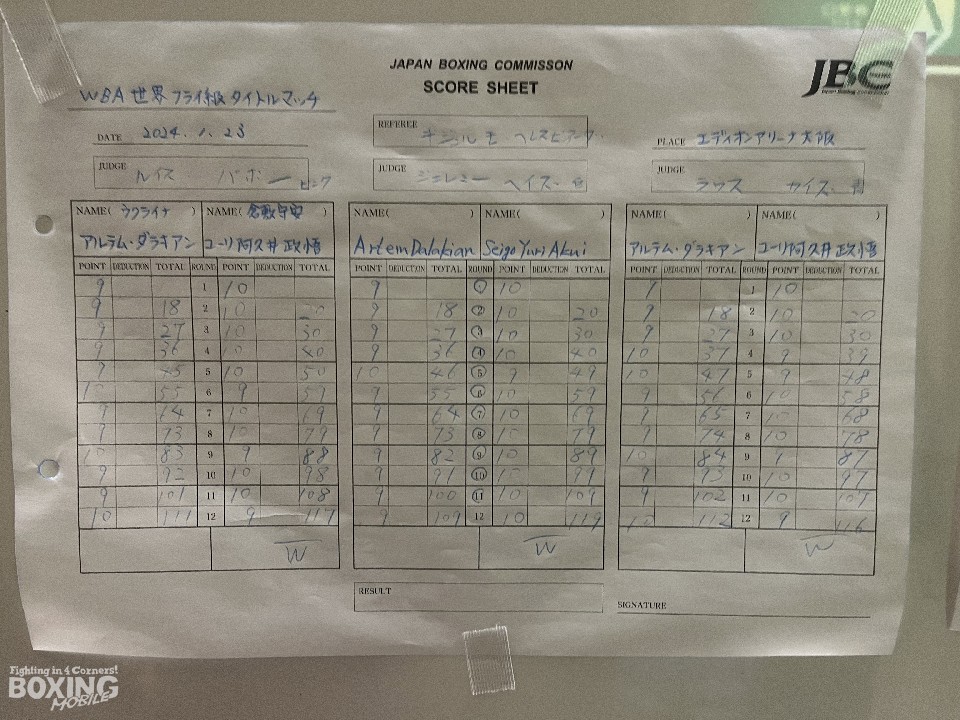 JAPAN BOXING COMMISSON
SCORE SHEET
JBC
Japan Boxing Commission
WBA 世界フライ級タイトルマッチ
DATE 2024.1.23
REFEREE
PLACE エディオンアリーナ大阪
JUDGE ルイス パボン ピンク
JUDGE ジェレミー ヘイズ 白
JUDGE ラウス カイズ 青
NAME( ウクライナ ) NAME( 倉敷守安 ) NAME( ) NAME( ) NAME( ) NAME( )
アルテム・ダラキアン ユーリ阿久井政悟 Artem Dalakian Seigo Yuri Akui アルテム・ダラキアン ユーリ阿久井政悟
POINT DEDUCTION TOTAL ROUND POINT DEDUCTION TOTAL POINT DEDUCTION TOTAL ROUND POINT DEDUCTION TOTAL POINT DEDUCTION TOTAL ROUND POINT DEDUCTION TOTAL
9 1 10 9 1 10 9 1 10
9 18 2 10 20 9 18 2 10 20 9 18 2 10 20
9 27 3 10 30 9 27 3 10 30 9 27 3 10 30
9 36 4 10 40 9 36 4 10 40 10 37 4 9 39
9 45 5 10 50 10 46 5 9 49 10 47 5 9 48
10 55 6 9 59 9 55 6 10 59 9 56 6 10 58
9 64 7 10 69 9 64 7 10 69 9 65 7 10 68
9 73 8 10 79 9 73 8 10 79 9 74 8 10 78
10 83 9 9 88 9 82 9 10 89 10 84 9 9 87
9 92 10 10 98 9 91 10 10 99 9 93 10 10 97
9 101 11 10 108 9 100 11 10 109 9 102 11 10 107
10 111 12 9 117 9 109 12 10 119 10 112 12 9 116
W W W
RESULT
SIGNATURE
Fighting in 4 Corners!
BOXING
MOBILE